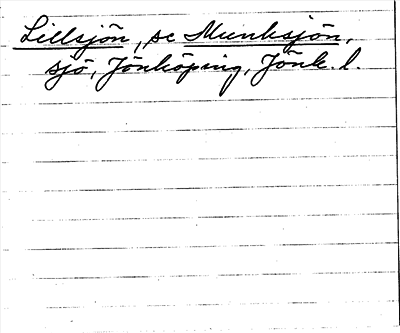 Lillsjön, se Munksjön,
sjö, Jönköping, Jönk. l.